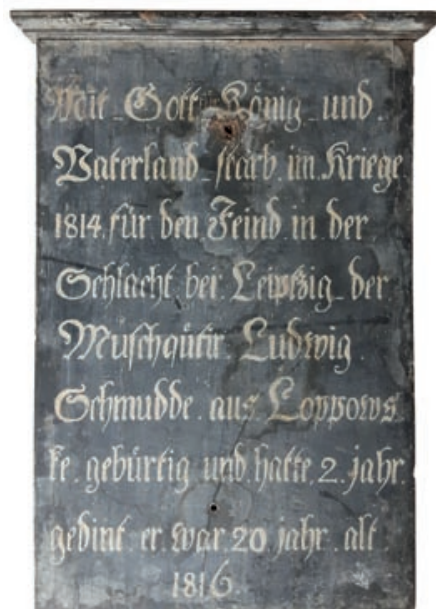 Mit Gott König und.
Vaterland starb im Kriege
1814 für den Feind in der
Schlacht bei Leiptzig der
Muschqütir Ludwig
Schmudde aus Loppows
ke. gebürtig und hatte 2. jahr.
gedint. er. war 20 jahr alt.
1816